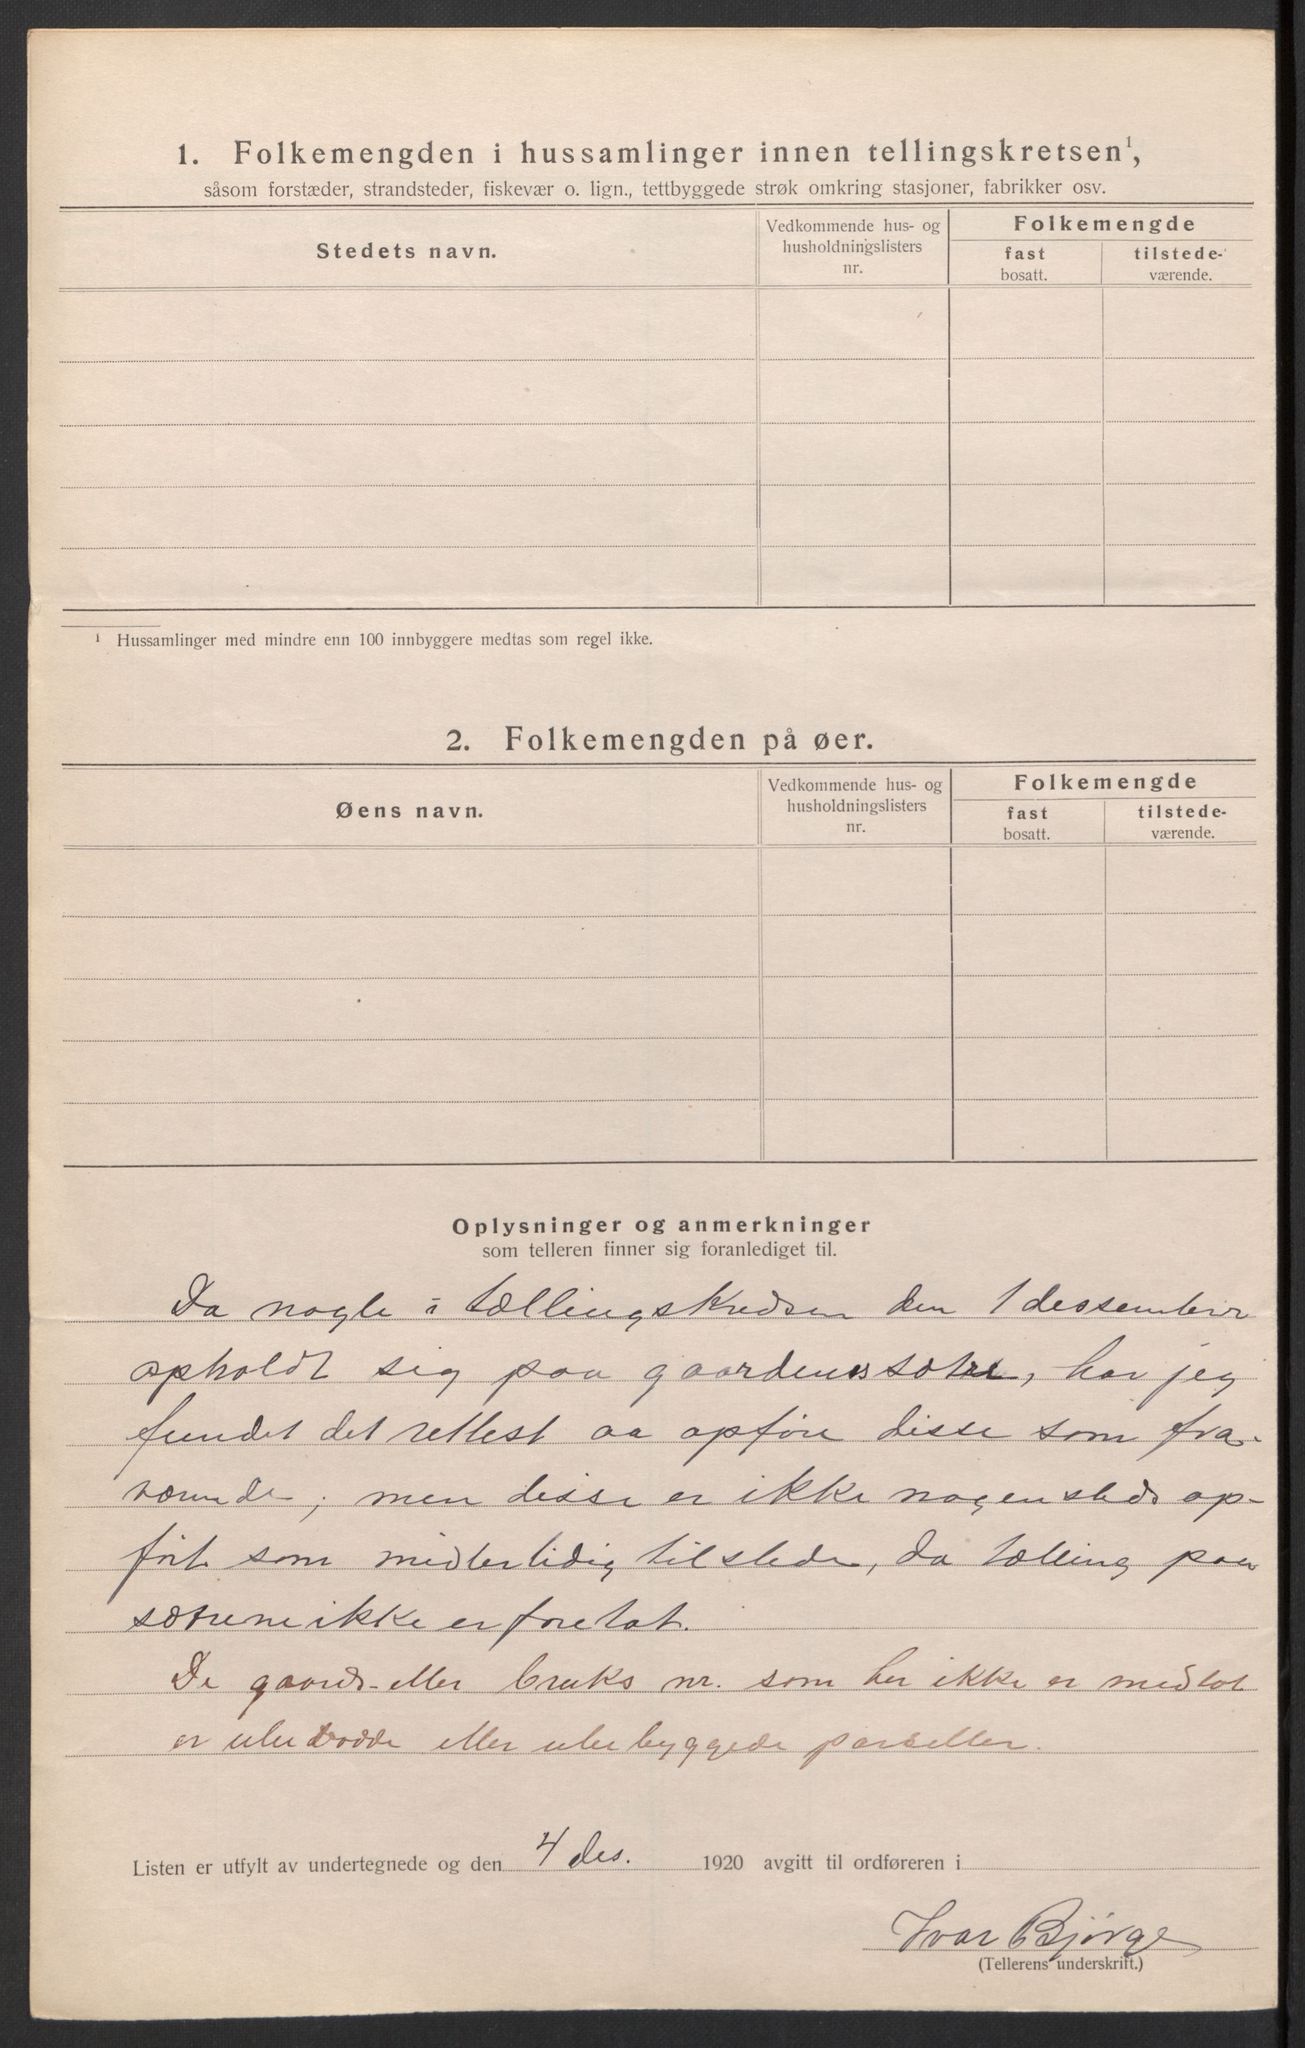 1. Folkemengden i hussamlinger innen tellingskretsen¹,
såsom forstæder, strandsteder, fiskevær o. lign., tettbyggede strøk omkring stasjoner, fabrikker osv.
Stedets navn.
Vedkommende hus- og
husholdningslisters
nr.
Folkemengde
fast
bosatt.
tilstede-
værende.
¹ Hussamlinger med mindre enn 100 innbyggere medtas som regel ikke.
2. Folkemengden på øer.
Øens navn.
Vedkommende hus- og
husholdningslisters
nr.
Folkemengde
fast
bosatt.
tilstede-
værende.
Oplysninger og anmerkninger
som telleren finner sig foranlediget til.
Da nogle i tællingskredsen den 1 dessember
opholdt sig paa gaardenes sætre, har jeg
fundet det rettest aa opføre disse som fra-
værende; men disse er ikke nogensteds op-
ført som midlertidig tilstede, da tælling paa
sætrene ikke er foretat.
De gaards- eller bruks nr. som her ikke er medtat
er ubebodde eller ubebyggede parseller.
Listen er utfylt av undertegnede og den 4 des. 1920 avgitt til ordføreren i
Ivar Bjørge
(Tellerens underskrift.)